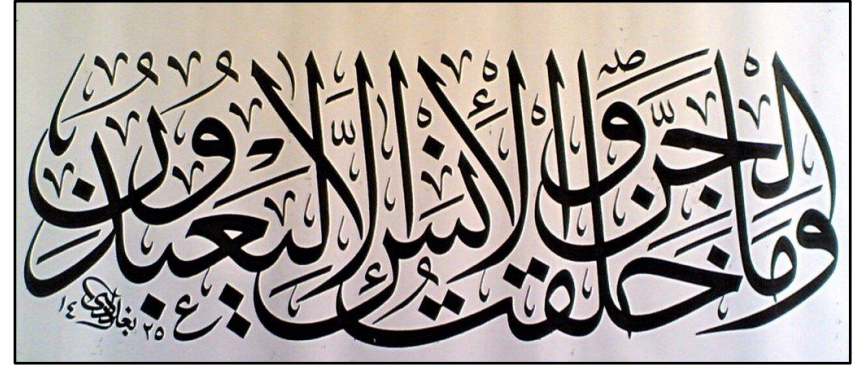 وَمَا خَلَقْتُ الْجِنَّ وَالْإِنسَ إِلَّا لِيَعْبُدُونِ